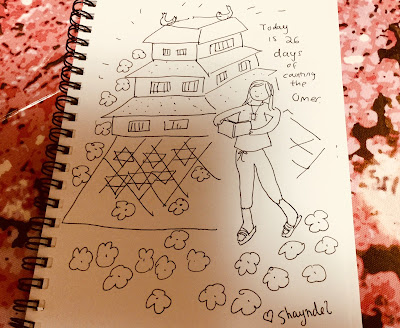 Today
is 26
days
of
counting
the
Omer
♡ Shayndel